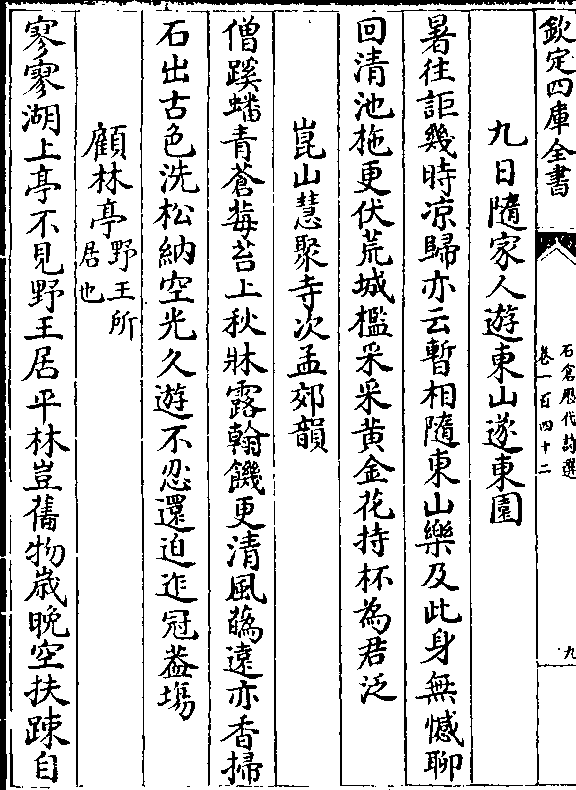 欽定四庫全書
石倉歷代詩選
卷一百四十二
九
九日隨家人遊東山遂東園
暑往詎幾時凉歸亦云暫相隨東山樂及此身無憾聊
回清池拖更伏荒城檻采采黄金花持杯為君泛
崑山慧聚寺次孟郊韻
僧蹊蟠青蒼莓苔上秋牀露翰饑更清風蘤遠亦香掃
石出古色洗松納空光久遊不忍還迫迮冠葢塲
顧林亭野王所居也
寥寥湖上亭不見野王居平林豈舊物歲晚空扶踈自